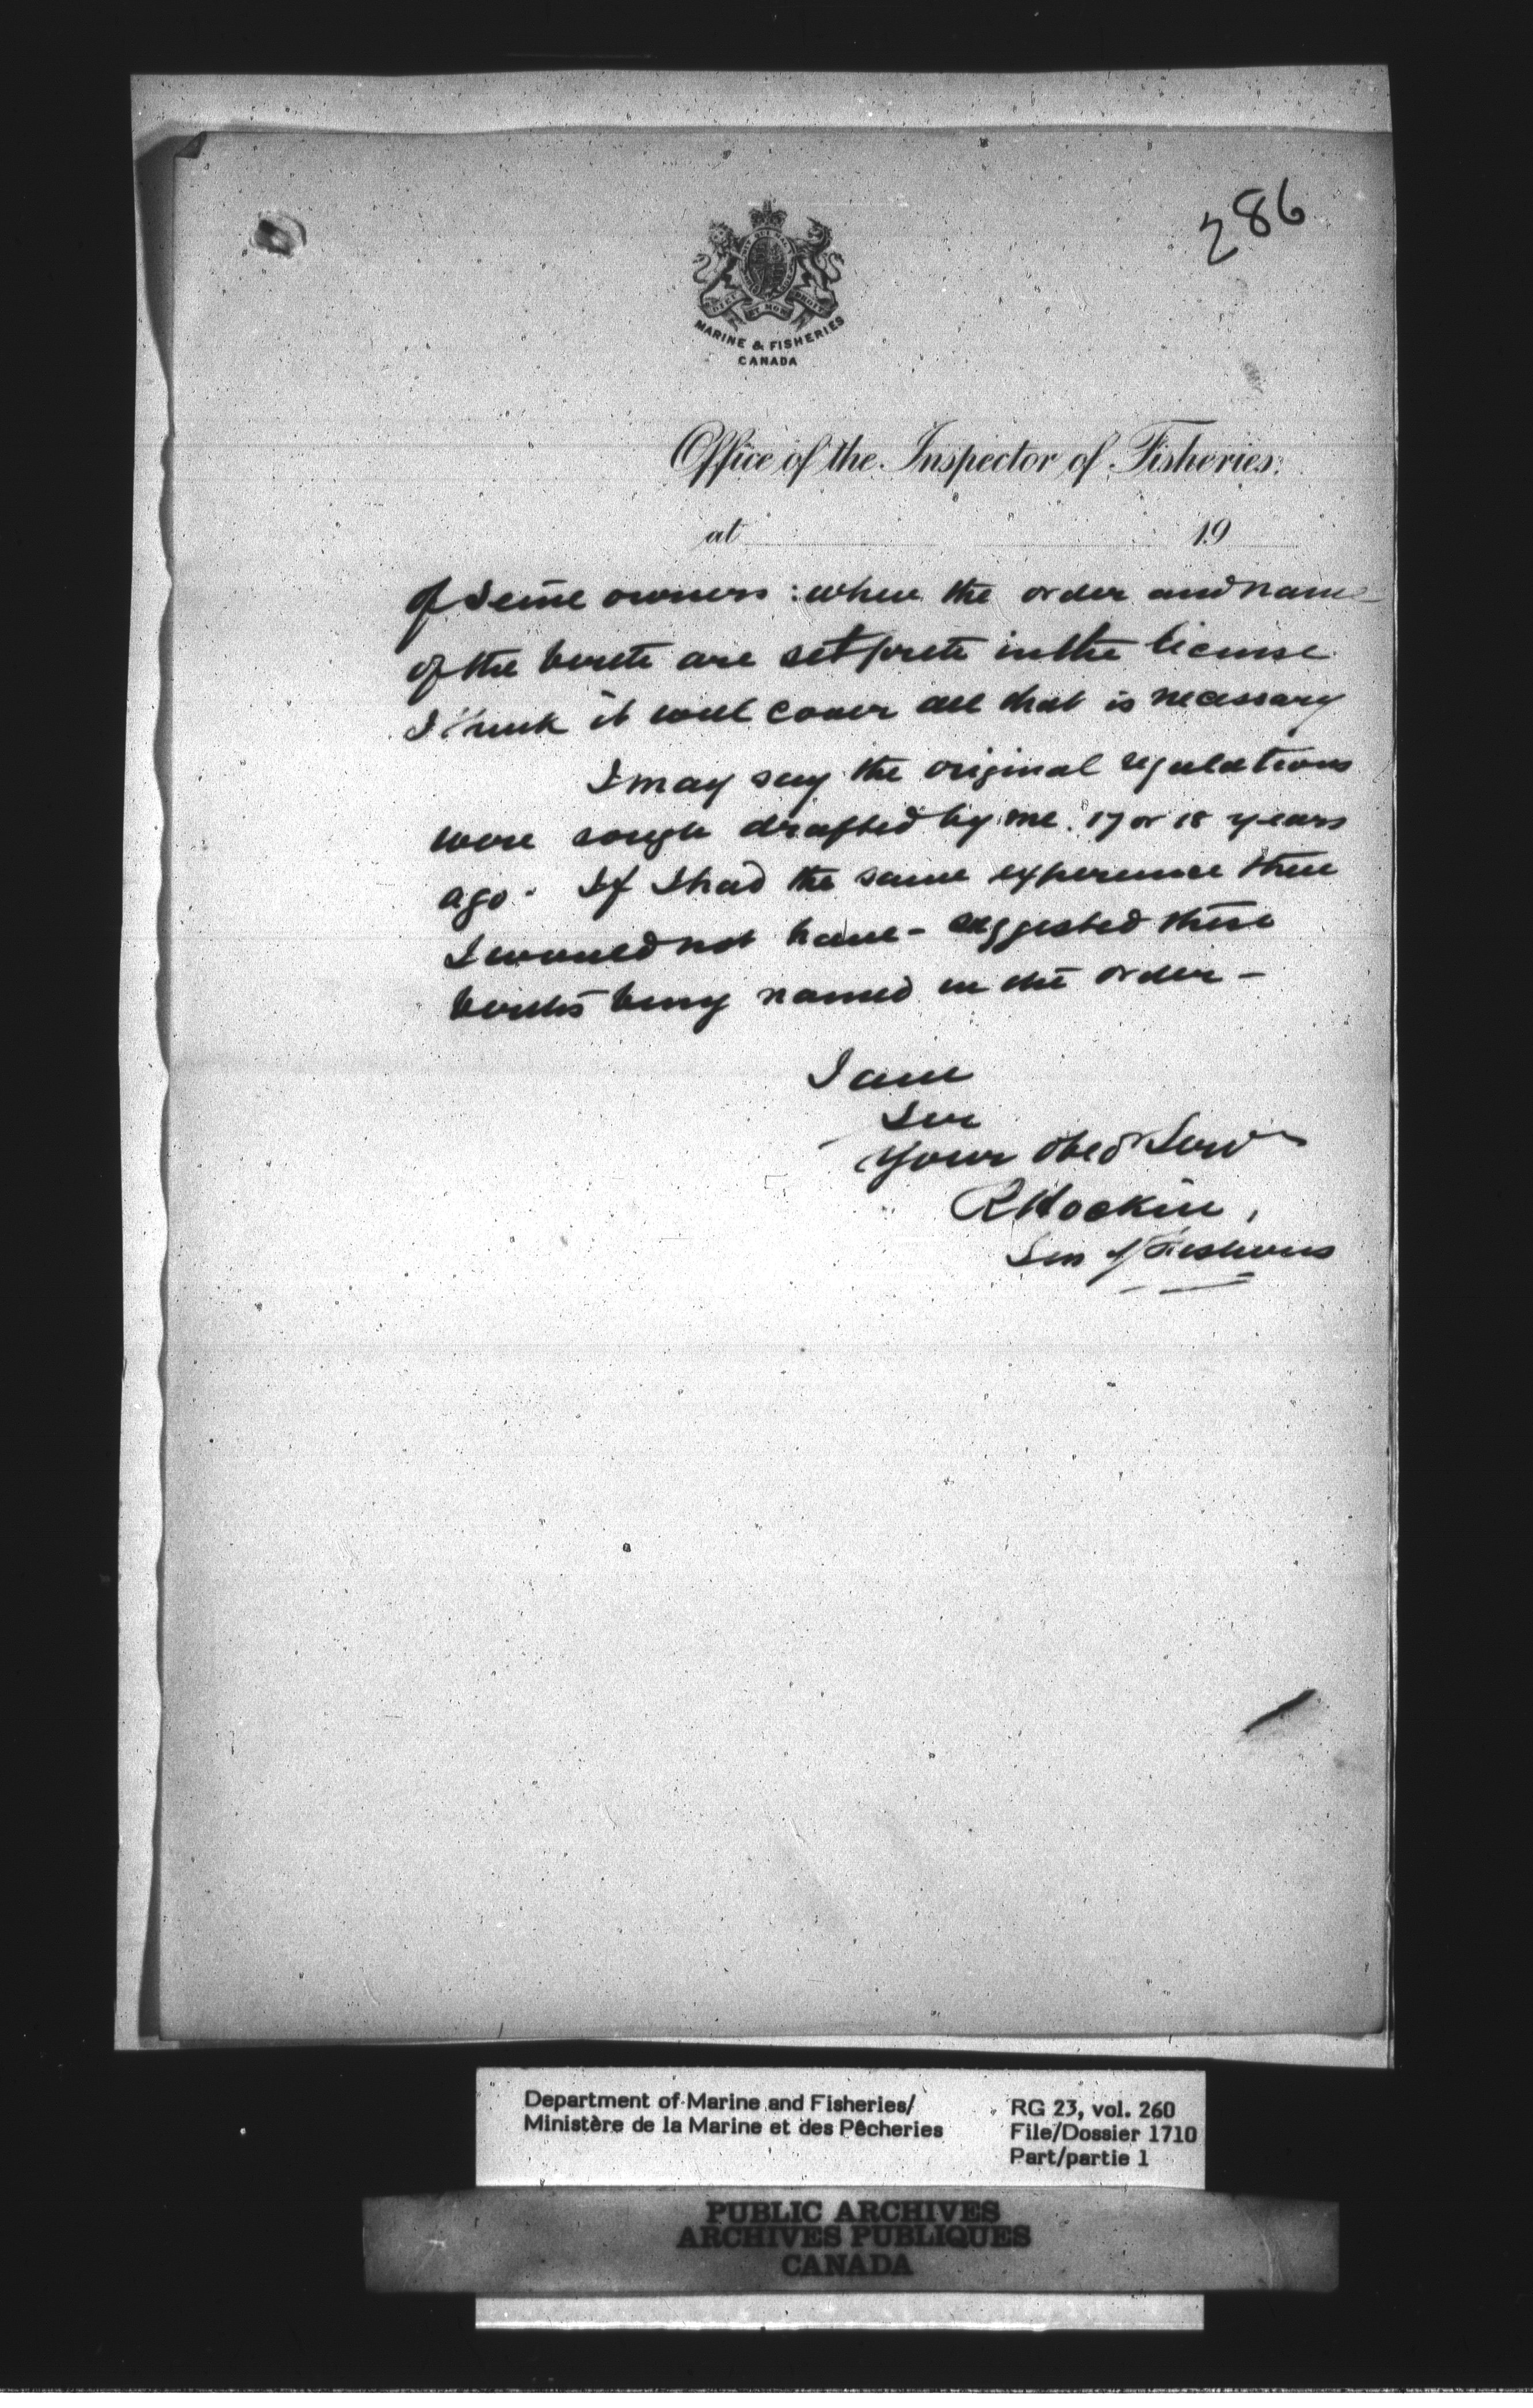 286
DIEU ET MON DROIT
MARINE & FISHERIES
CANADA
Office of the Inspector of Fisheries.
at 19
of Seine owners: when the order and name
of the berth are set forth in the license
I think it will cover all that is necessary
I may say the original regulations
were rough drafted by me. 17 or 18 years
ago. If I had the same experience then
I would not have - suggested these
berths being named in the order -
I am
Sir
Your obed Serv
R Hockin,
Ins of Fisheries
Department of Marine and Fisheries/
Ministère de la Marine et des Pêcheries
RG 23, vol. 260
File/Dossier 1710
Part/partie 1
PUBLIC ARCHIVES
ARCHIVES PUBLIQUES
CANADA